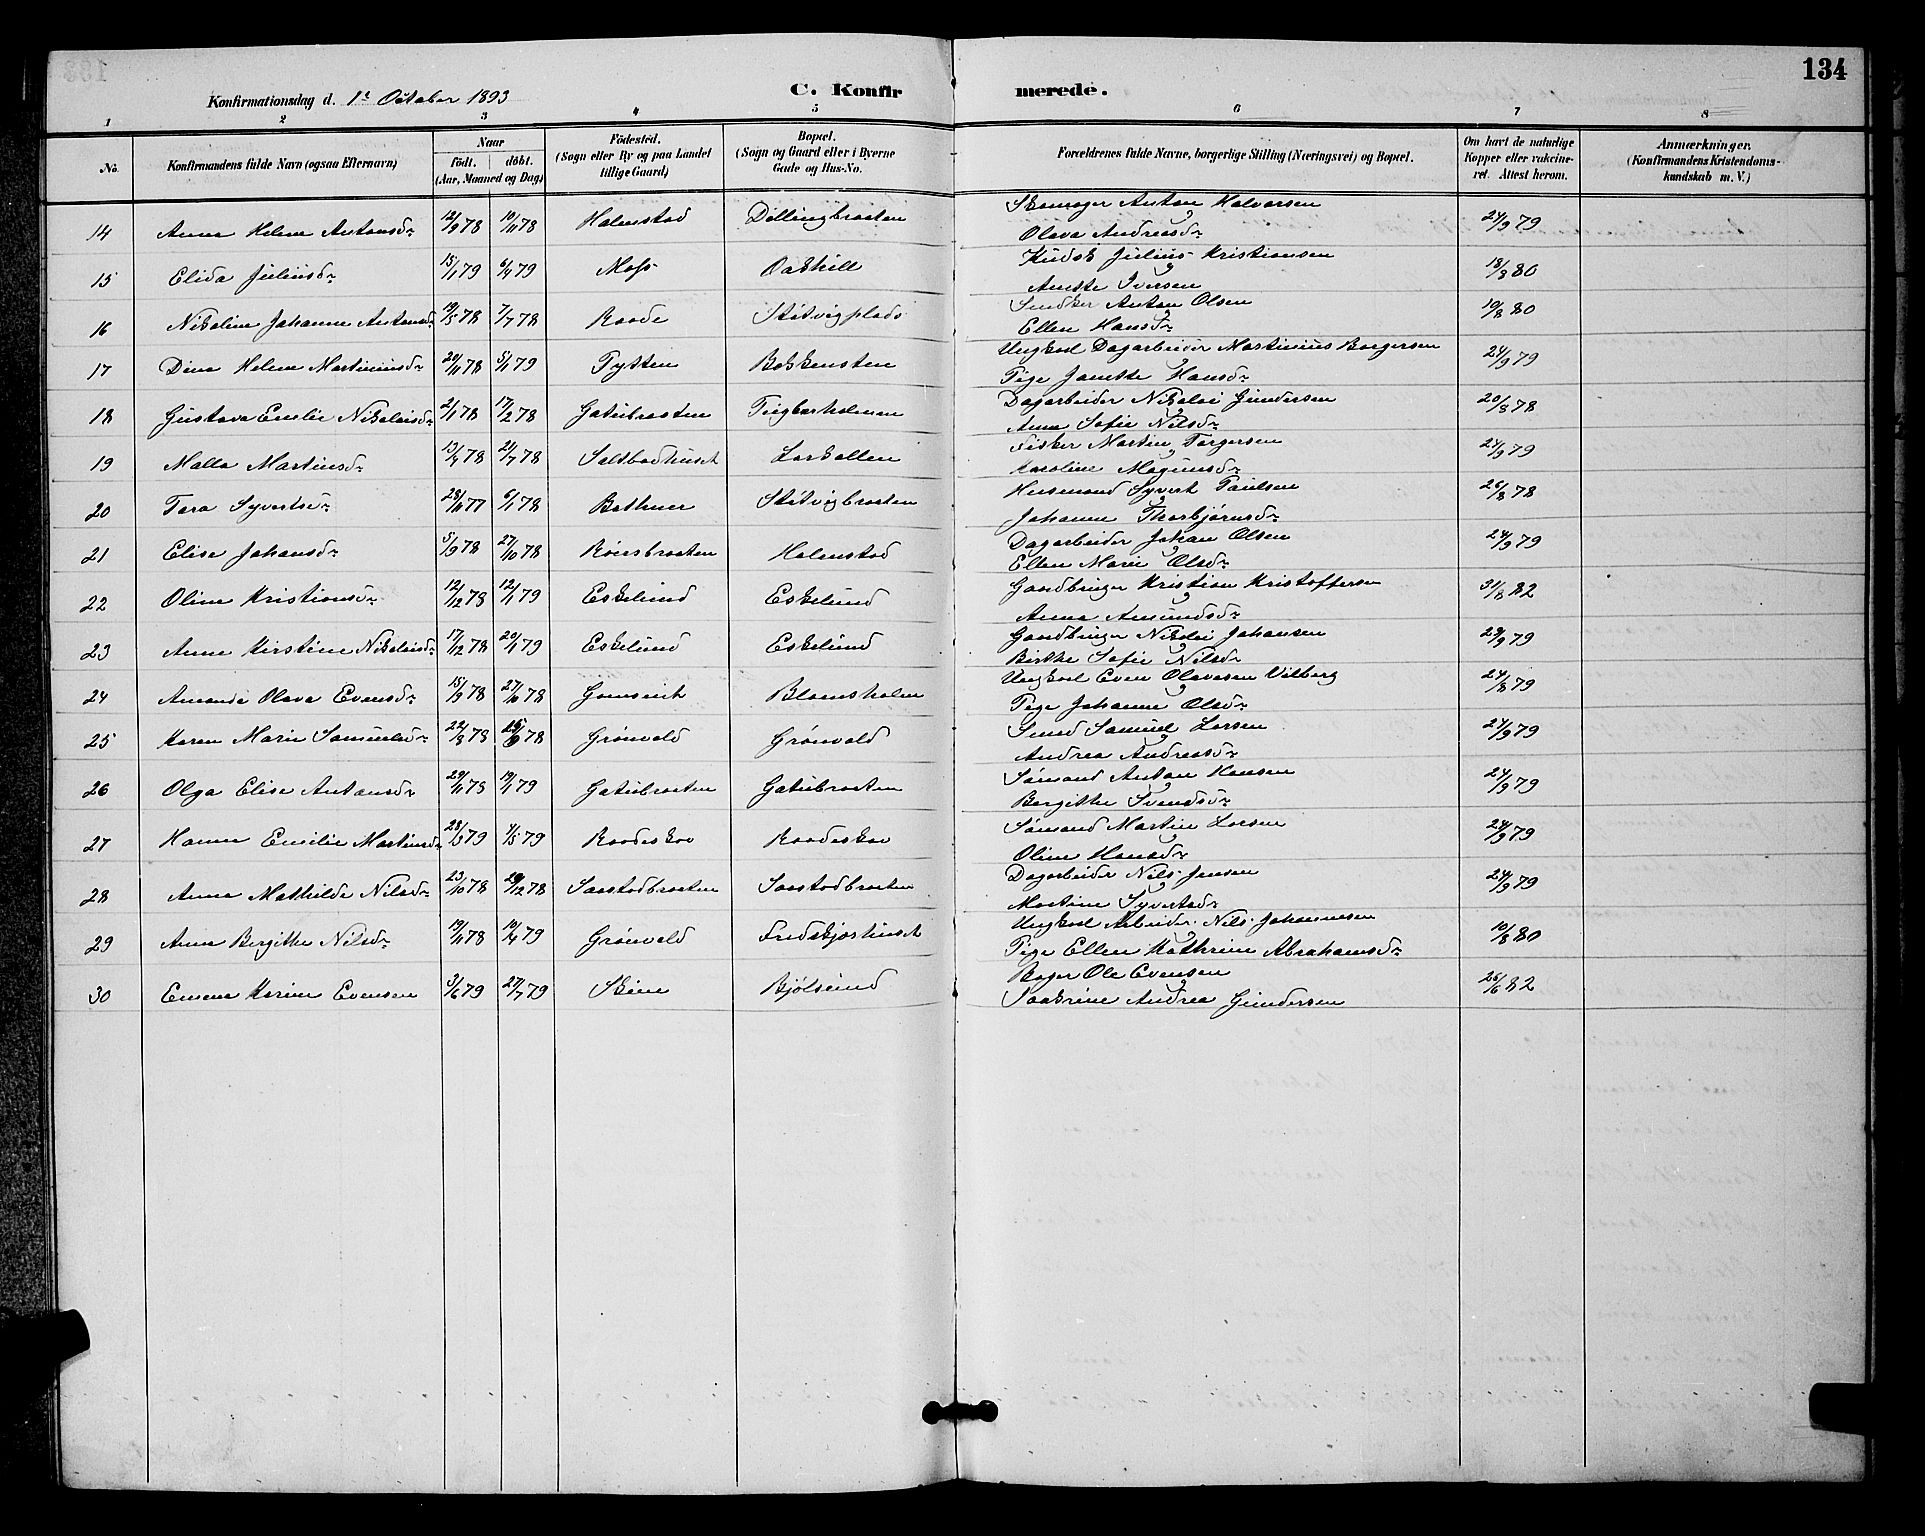 134
Konfirmationsdag d. 1e October 1893 C. Konfirmerede.
1 2 3 4 5 6 7 8
No. Konfirmandens fulde Navn (ogsaa Efternavn) Naar födt. döbt. (Aar, Maaned og Dag) Födested. (Sogn eller By og paa Landet tillige Gaard) Bopæl. (Sogn og Gaard eller i Byerne Gade og Hus-No. Forældrenes fulde Navne, borgerlige Stilling (Næringsvei) og Bopæl. Om havt de naturlige Kopper eller vakcineret. Attest herom. Anmærkninger. (Konfirmandens Kristendomskundskab m. V.)
14 Anna Helene Antonsdr 12/9 78 10/11 78 Halmstad Dillingbraaten Skomager Anton Halvorsen 24/9 79
Olava Andreasdr
15 Elida Juliusdr 15/1 79 6/4 79 Moss Oakhill Kudsk Julius Kristiansen 18/3 80
Anette Iversen
16 Nikoline Johanne Antonsdr 19/5 78 7/7 78 Raade Støtvigplads Snedker Anton Olsen 19/8 80
Ellen Hansdr
17 Dina Helene Martiniusdr 20/11 78 5/1 79 Tytten Bakkensten Ungkarl Dagarbeider Martinius Borgersen 24/9 79
Pige Janette Hansdr
18 Gustava Emilie Nikolaisdr 2/1 78 17/2 78 Gatubraaten Tiegberholmen Dagarbeider Nikolai Gundersen 20/8 78
Anna Sofie Nilsdr
19 Malla Martinsdr 13/4 78 21/7 78 Saltbodhuset Larkollen Fisker Martin Torgersen 24/9 79
Karoline Magnusdr
20 Tora Syvertsdr 28/10 77 6/1 78 Botner Støtvigbraaten Husmand Syvert Paulsen 26/8 78
Johanne Thorbjørnsdr
21 Elise Johansdr 5/9 78 27/10 78 Roersbraaten Halmstad Dagarbeider Johan Olsen 24/9 79
Ellen Marie Olsdr
22 Oline Kristiansdr 12/12 78 12/1 79 Eskelund Eskelund Gaardbruger Kristian Kristoffersen 31/8 82
Anna Amundsdr
23 Anne Kirstine Nikolaisdr 17/12 78 20/1 79 Eskelund Eskelund Gaardbruger Nikolai Johansen 29/9 79
Birthe Sofie Nilsdr
24 Amanda Olava Evensdr 15/9 78 27/10 78 Gamsrik Blomsholm Ungkarl Even Olavesen Vilberg 24/8 79
Pige Johanne Olsdr
25 Karen Marie Samuelsdr 22/8 78 15/9 78 Grönvold Grönvold Smed Samuel Larsen 24/9 79
Andrea Andreasdr
26 Olga Elise Antonsdr 29/11 78 19/1 79 Gatubraaten Gatubraaten Sömand Anton Hansen 24/9 79
Bergithe Svendsdr
27 Hanna Emilie Martinsdr 28/3 79 4/5 79 Raadeskov Raadeskov Sömand Martin Larsen 24/9 79
Oline Hansdr
28 Anna Mathilde Nilsdr 23/10 78 29/12 78 Saastadbraaten Saastadbraaten Dagarbeider Nils Jensen 24/9 79
Martine Syvertsdr
29 Anna Bergithe Nilsdr 19/11 78 10/4 79 Grönvold Fredskjærhuset Ungkarl Arbeider Nils Johannesen 10/8 80
Pige Ellen Kathrine Abrahamsdr
30 Emma Karine Evensen 3/6 79 27/7 79 Skien Bjølsund Bager Ole Evensen 26/6 82
Saakrine Andrea Gundersen